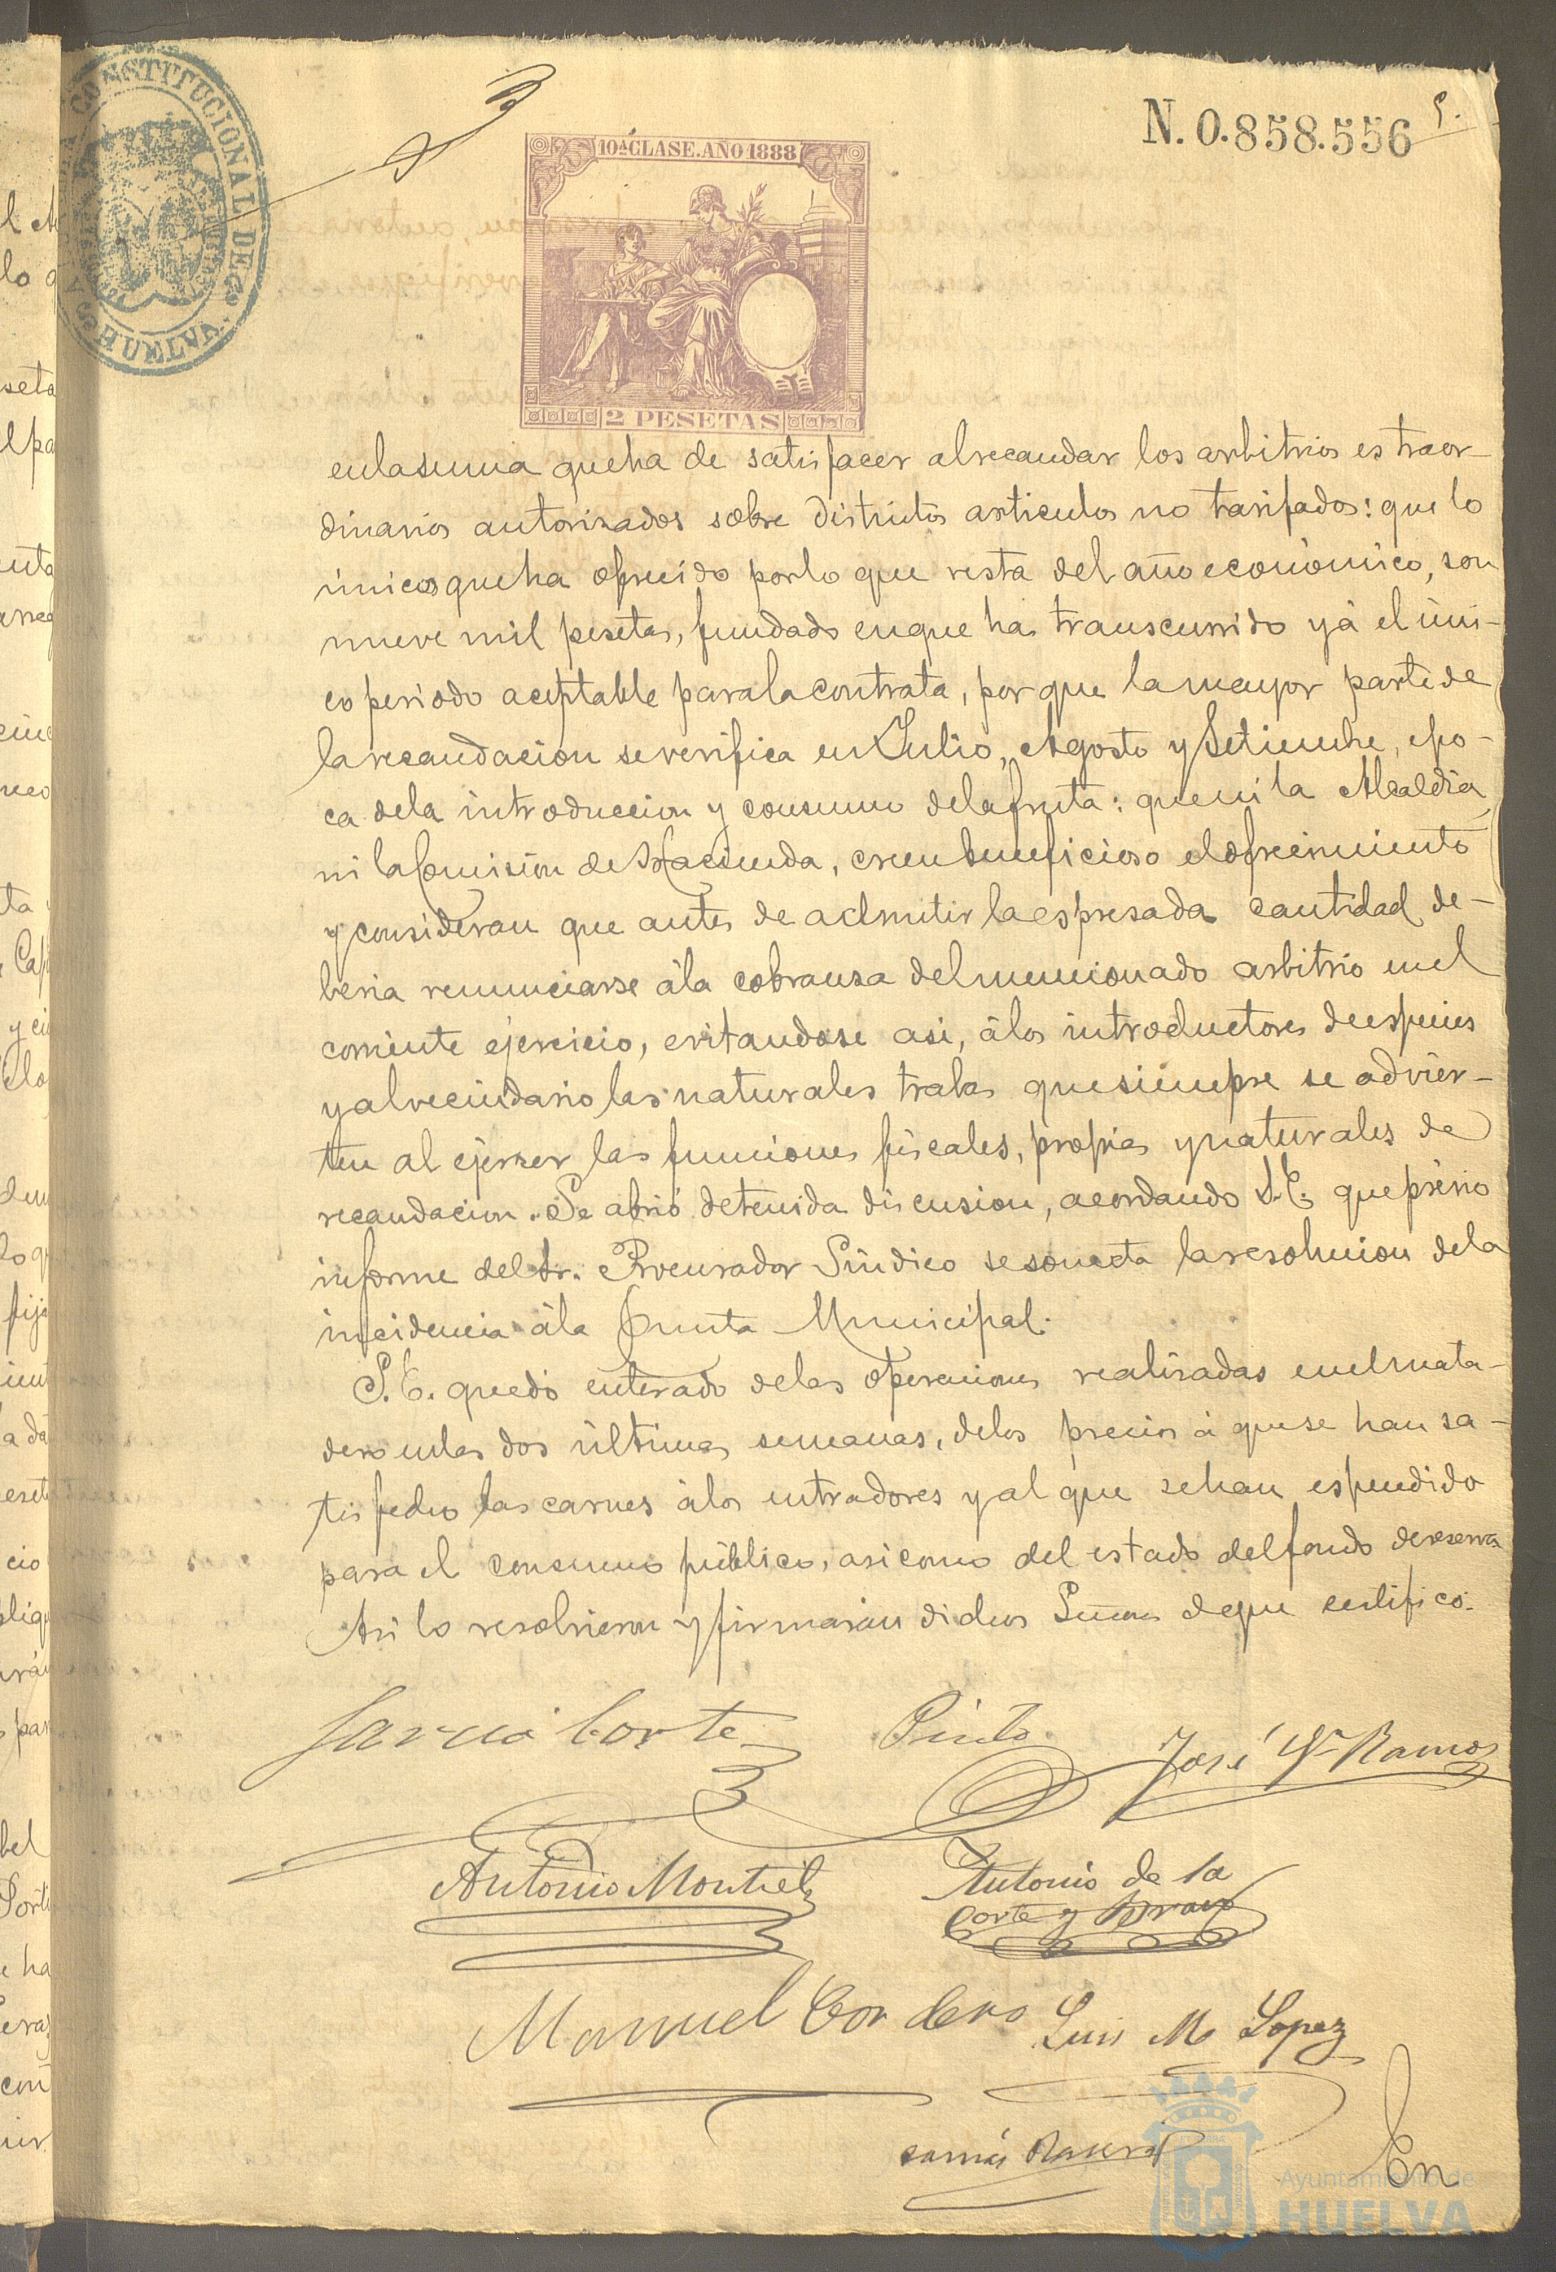 ALCALDIA CONSTITUCIONAL DE HUELVA
N. 0.858.556
5.
10ª CLASE. AÑO 1888
2 PESETAS
en la suma que ha de satisfacer al recaudar los arbitrios estraor-
dinarios autorizados sobre distintos articulos no tarifados: que lo
único que ha ofrecido por lo que resta del año económico, son
nueve mil pesetas, fundado en que ha transcurrido yá el úni-
co periodo aceptable para la contrata, por que la mayor parte de
la recaudacion se verifica en Julio, Agosto y Setiembre, épo-
ca de la introduccion y consumo de la fruta: que ni la Alcaldia
ni la Comisión de Hacienda, creen beneficioso el ofrecimiento
y consideran que antes de admitir la espresada cantidad de-
beria renunciarse á la cobransa del mencionado arbitrio en el
corriente ejercicio, evitandose asi, á los introductores de especies
y al vecindario las naturales trabas que siempre se advier-
ten al ejercer las funciones fiscales, propias y naturales de
recaudacion. Se abrió detenida discusion, acordando S.E. que prévio
informe del Sr. Procurador Síndico se someta la resolucion de la
incidencia á la Junta Municipal.
S.E. quedó enterado de las operaciones realizadas en el mata-
dero en las dos últimas semanas, de los precios á que se han sa-
tisfecho las carnes á los entradores y al que se han espendido
para el consumo público, asi como del estado del fondo de reserva
Asi lo resolvieron y firmarán dichos Señores de que certifico.
Garcia Corte
Pinto
José Gª Ramos
Antonio Montiel
Antonio de la
Corte y Bravo
Manuel Cordero
Luis M Lopez
En
Ayuntamiento de
HUELVA